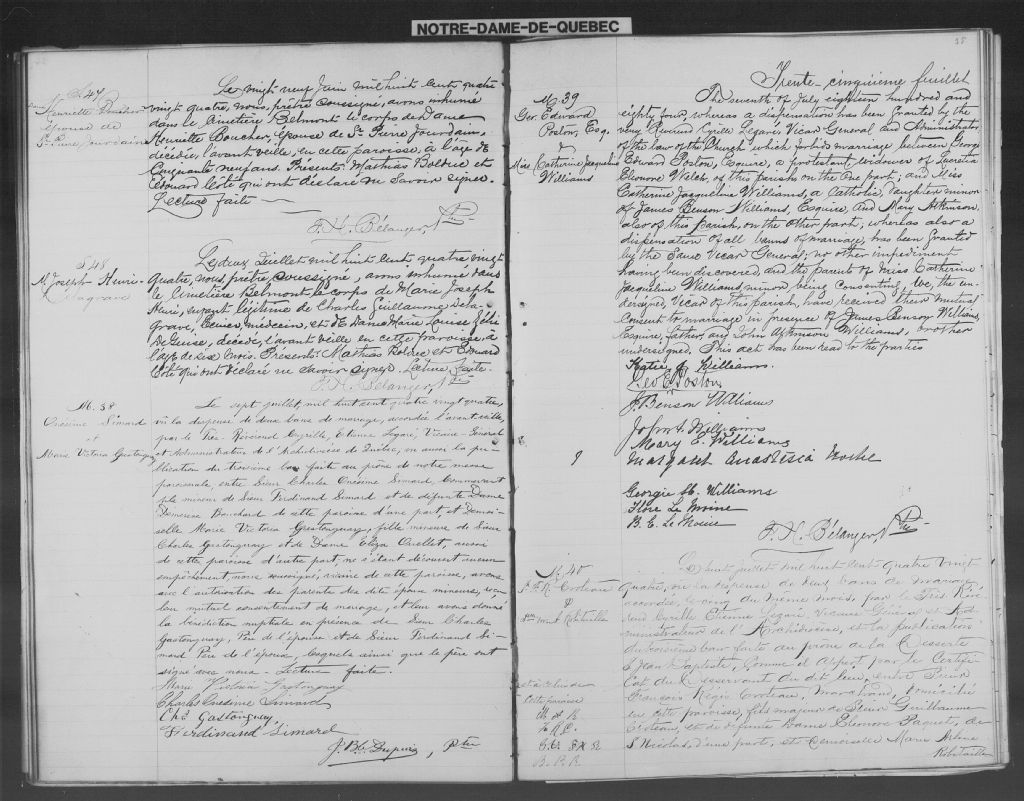 NOTRE-DAME-DE-QUEBEC
S.47
Henriette Boucher
épouse de
St. Pierre Jourdain
Le vingt neuf Juin mil huit cent quatre
vingt quatre, nous, prêtre soussigné, avons inhumé
dans le cimetière Belmont le corps de Dame
Henriette Boucher, épouse de St. Pierre Jourdain,
décédée, l'avant veille, en cette paroisse, à l'age de
cinquante neuf ans. Présents: Mathias Boldue et
Edouard Côté qui ont déclaré ne savoir signer.
Lecture faite
F. H. Bélanger, Ptre
S.48
M. Joseph Henri
Lagrave
Le deux Juillet mil huit cent quatre vingt
quatre, nous, prêtre, soussigné, avons inhumé dans
le cimetière Belmont le corps de Marie Joseph
Henri, enfant légitime de Charles Guillaume
médecin, et de Dame Marie Louise
décédé, l'avant veille en cette paroisse à
l'age de six mois. Présents: Mathias Boldue et Edouard
Côté qui ont déclaré ne savoir signer. Lecture faite.
F. H. Bélanger, Ptre
M. 38
Onésime Simard
et
Marie Victoria Gastonguay
Le sept juillet, mil huit cent quatre vingt quatre,
vu la dispense de deux bans de mariage, accordée l'avant veille,
par le Très-Révérend Cyrille, Etienne Legaré, Vicaire-Général
et Administrateur de l'Archidiocèse de Québec, vu aussi la pu-
blication du troisième ban faite au prône de notre messe
paroissiale entre Sieur Charles Onésime Simard, Commerçant
fils mineur de Sieur Ferdinand Simard et de défunte Dame
Demerise Bouchard de cette paroisse d'une part et Demoi-
selle Marie Victoria Gastonguay, fille mineure de Sieur
Charles Gastonguay et de Dame Eliza Ouellet, aussi
de cette paroisse d'autre part, ne s'étant découvert aucun
empêchement, nous soussigné, vicaire de cette paroisse, avons
avec l'autorisation des parents des dits époux mineurs, reçu
leur mutuel consentement de mariage, et leur avons donné
la bénédiction nuptiale en présence de Sieur Charles
Gastonguay, Père de l'épouse et de Sieur Ferdinand Si-
mard Père de l'époux, lesquels ainsi que le père ont
signé avec nous. Lecture faite.
Marie Victoria Gastonguay
Charles Onésime Simard
Chs Gastonguay
Ferdinand Simard
J. Bte Dupuis, Ptre
35
Trente-cinquième feuillet
M. 39
Geo. Edward
Poston, Esq.
&
Miss Catherine Jacqueline
Williams
The seventh of July eighteen hundred and
eighty four, whereas a dispensation has been granted by the
very Revend Cyrille Legaré, Vicar General and Administrator
of the law of the Church which forbids marriage between George
Edward Poston, Esquire, a protestant, widower of Lucretia
Eleonore Welch, of this parish on the one part; and Miss
Catherine Jacqueline Williams, a Catholic, daughter minor
of James Benson Williams, Esquire, and Mary Atkinson
also of this parish, on the other part; whereas also a
dispensation of all banns of marriage, has been granted
by the same Vicar General; no other impediment
having been discovered, and the parents of Miss Catherine
Jacqueline Williams, minor being consenting, We, the un-
dersigned, Vicar of this parish, have received their mutual
consent to marriage in presence of James Benson Williams,
Esquire, father, and John Atkinson Williams, brother
undersigned. This act has been read to the parties
Katie J. Williams.
Geo E Poston
J. Benson Williams
John A. Williams
Mary E. Williams
Margaret Anastasia Roche
Georgie M. Williams
Flore Le Moine
B. E. Le Moine
F. H. Bélanger, Ptre
M. 40
F. R. Croteau
&
M. A. Robitaille
Le huit juillet mil huit cent quatre vingt
quatre, vu la dispense de deux bans de mariage
accordée, le cinq du même mois, par le Très Révé-
rend Cyrille Etienne Legaré, Vicaire Général et Ad-
ministrateur de l'Archidiocèse, et la publication
du troisième ban faite au prône de la Desserte
St Jean Baptiste, comme il appert par le certifi-
cat du Desservant du dit lieu, entre Sieur
François Régis Croteau, Marchand, domicilié
en cette paroisse, fils majeur de Sieur Guillaume
Croteau, et de défunte Dame Eléonore Paquet, de
St Nicolas, d'une part, et Demoiselle Marie Arline
Robitaille
cette paroisse
B. P. R.